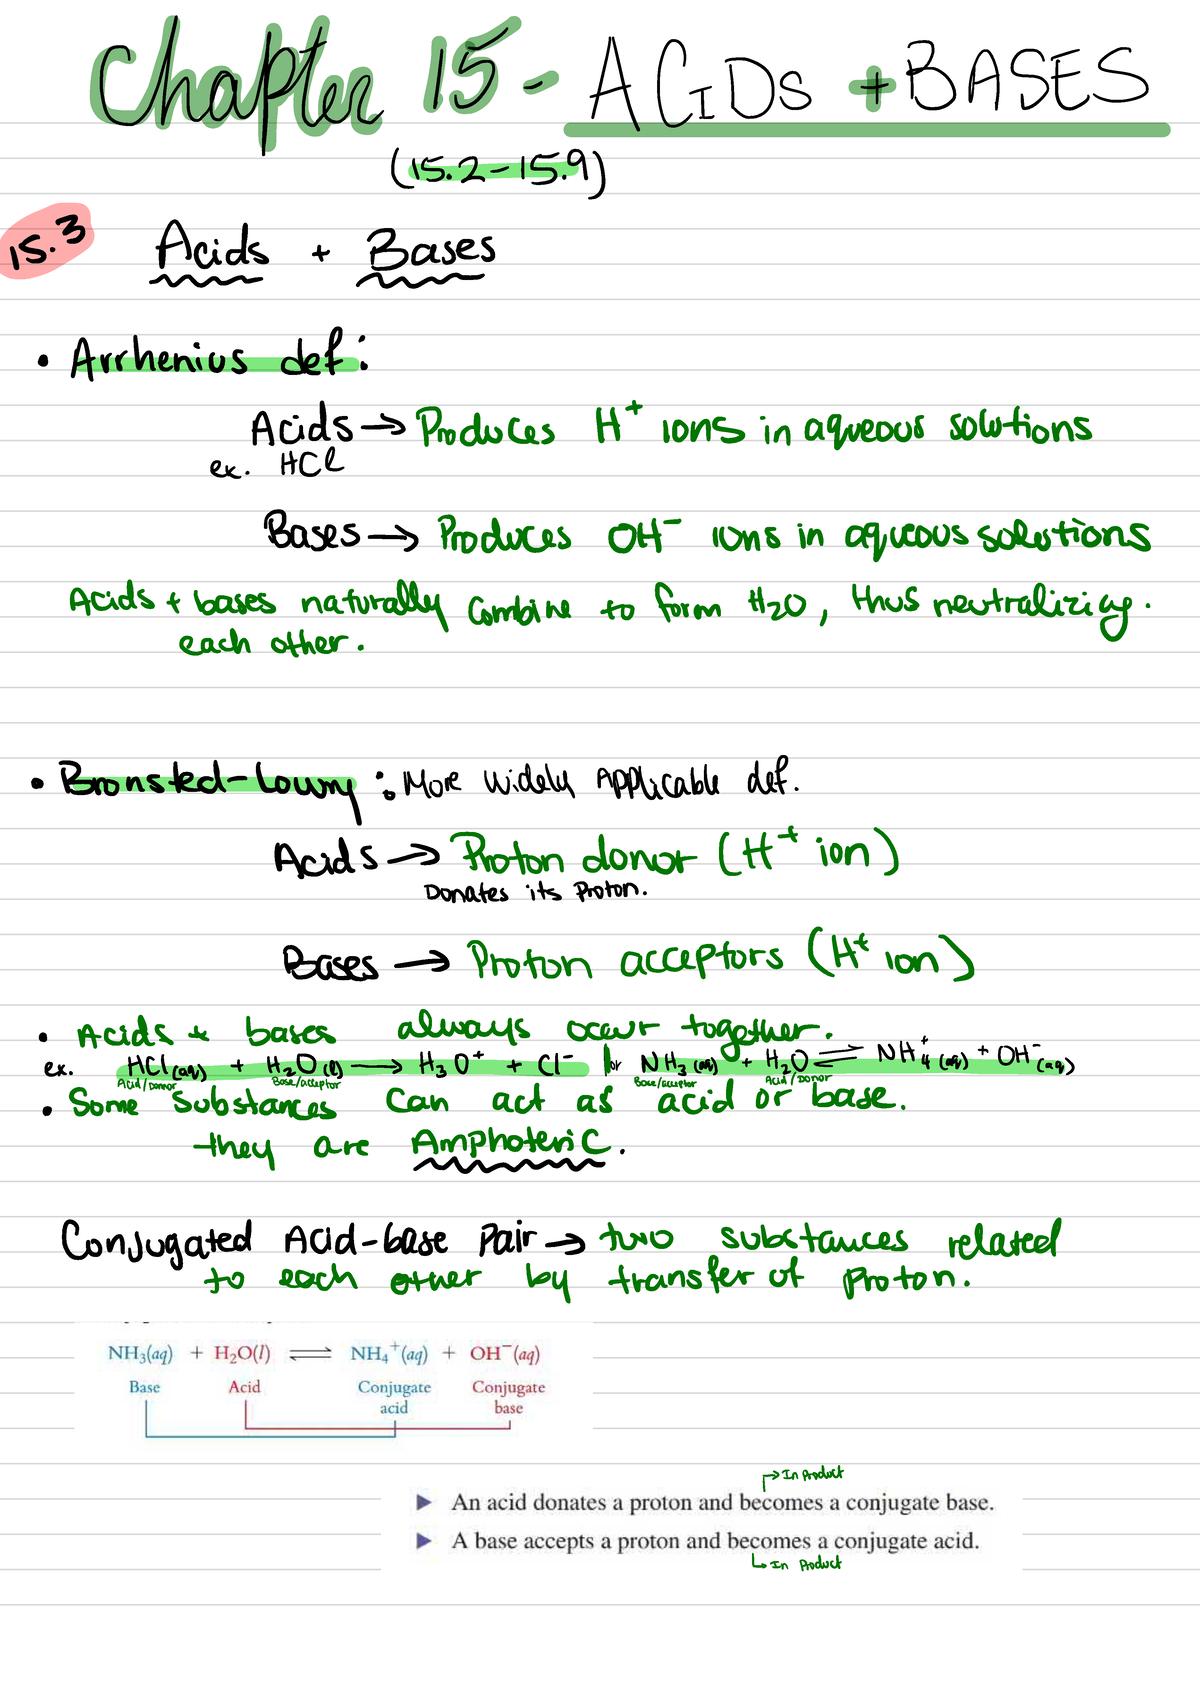 Chapter 15 - ACIDS + BASES
(15.2-15.9)
15.3 Acids + Bases
• Arrhenius def:
Acids → Produces H⁺ ions in aqueous solutions
ex. HCl
Bases → Produces OH⁻ ions in aqueous solutions
Acids + bases naturally combine to form H₂O, thus neutralizing.
each other.
• Bronsted-Lowry: More widely Applicable def.
Acids → Proton donor (H⁺ ion)
Donates its Proton.
Bases → Proton acceptors (H⁺ ion)
• Acids & bases always occur together.
ex. HCl(aq) + H₂O(l) → H₃O⁺ + Cl⁻ or NH₃(aq) + H₂O ⇌ NH₄⁺(aq) + OH⁻(aq)
Acid/Donor Base/acceptor Base/acceptor Acid/Donor
• Some substances can act as acid or base.
they are Amphoteric.
Conjugated Acid-base Pair → two substances related
to each other by transfer of Proton.
NH₃(aq) + H₂O(l) ⇌ NH₄⁺(aq) + OH⁻(aq)
Base Acid Conjugate Conjugate
acid base
→ In Product
▶ An acid donates a proton and becomes a conjugate base.
▶ A base accepts a proton and becomes a conjugate acid.
↳ In Product